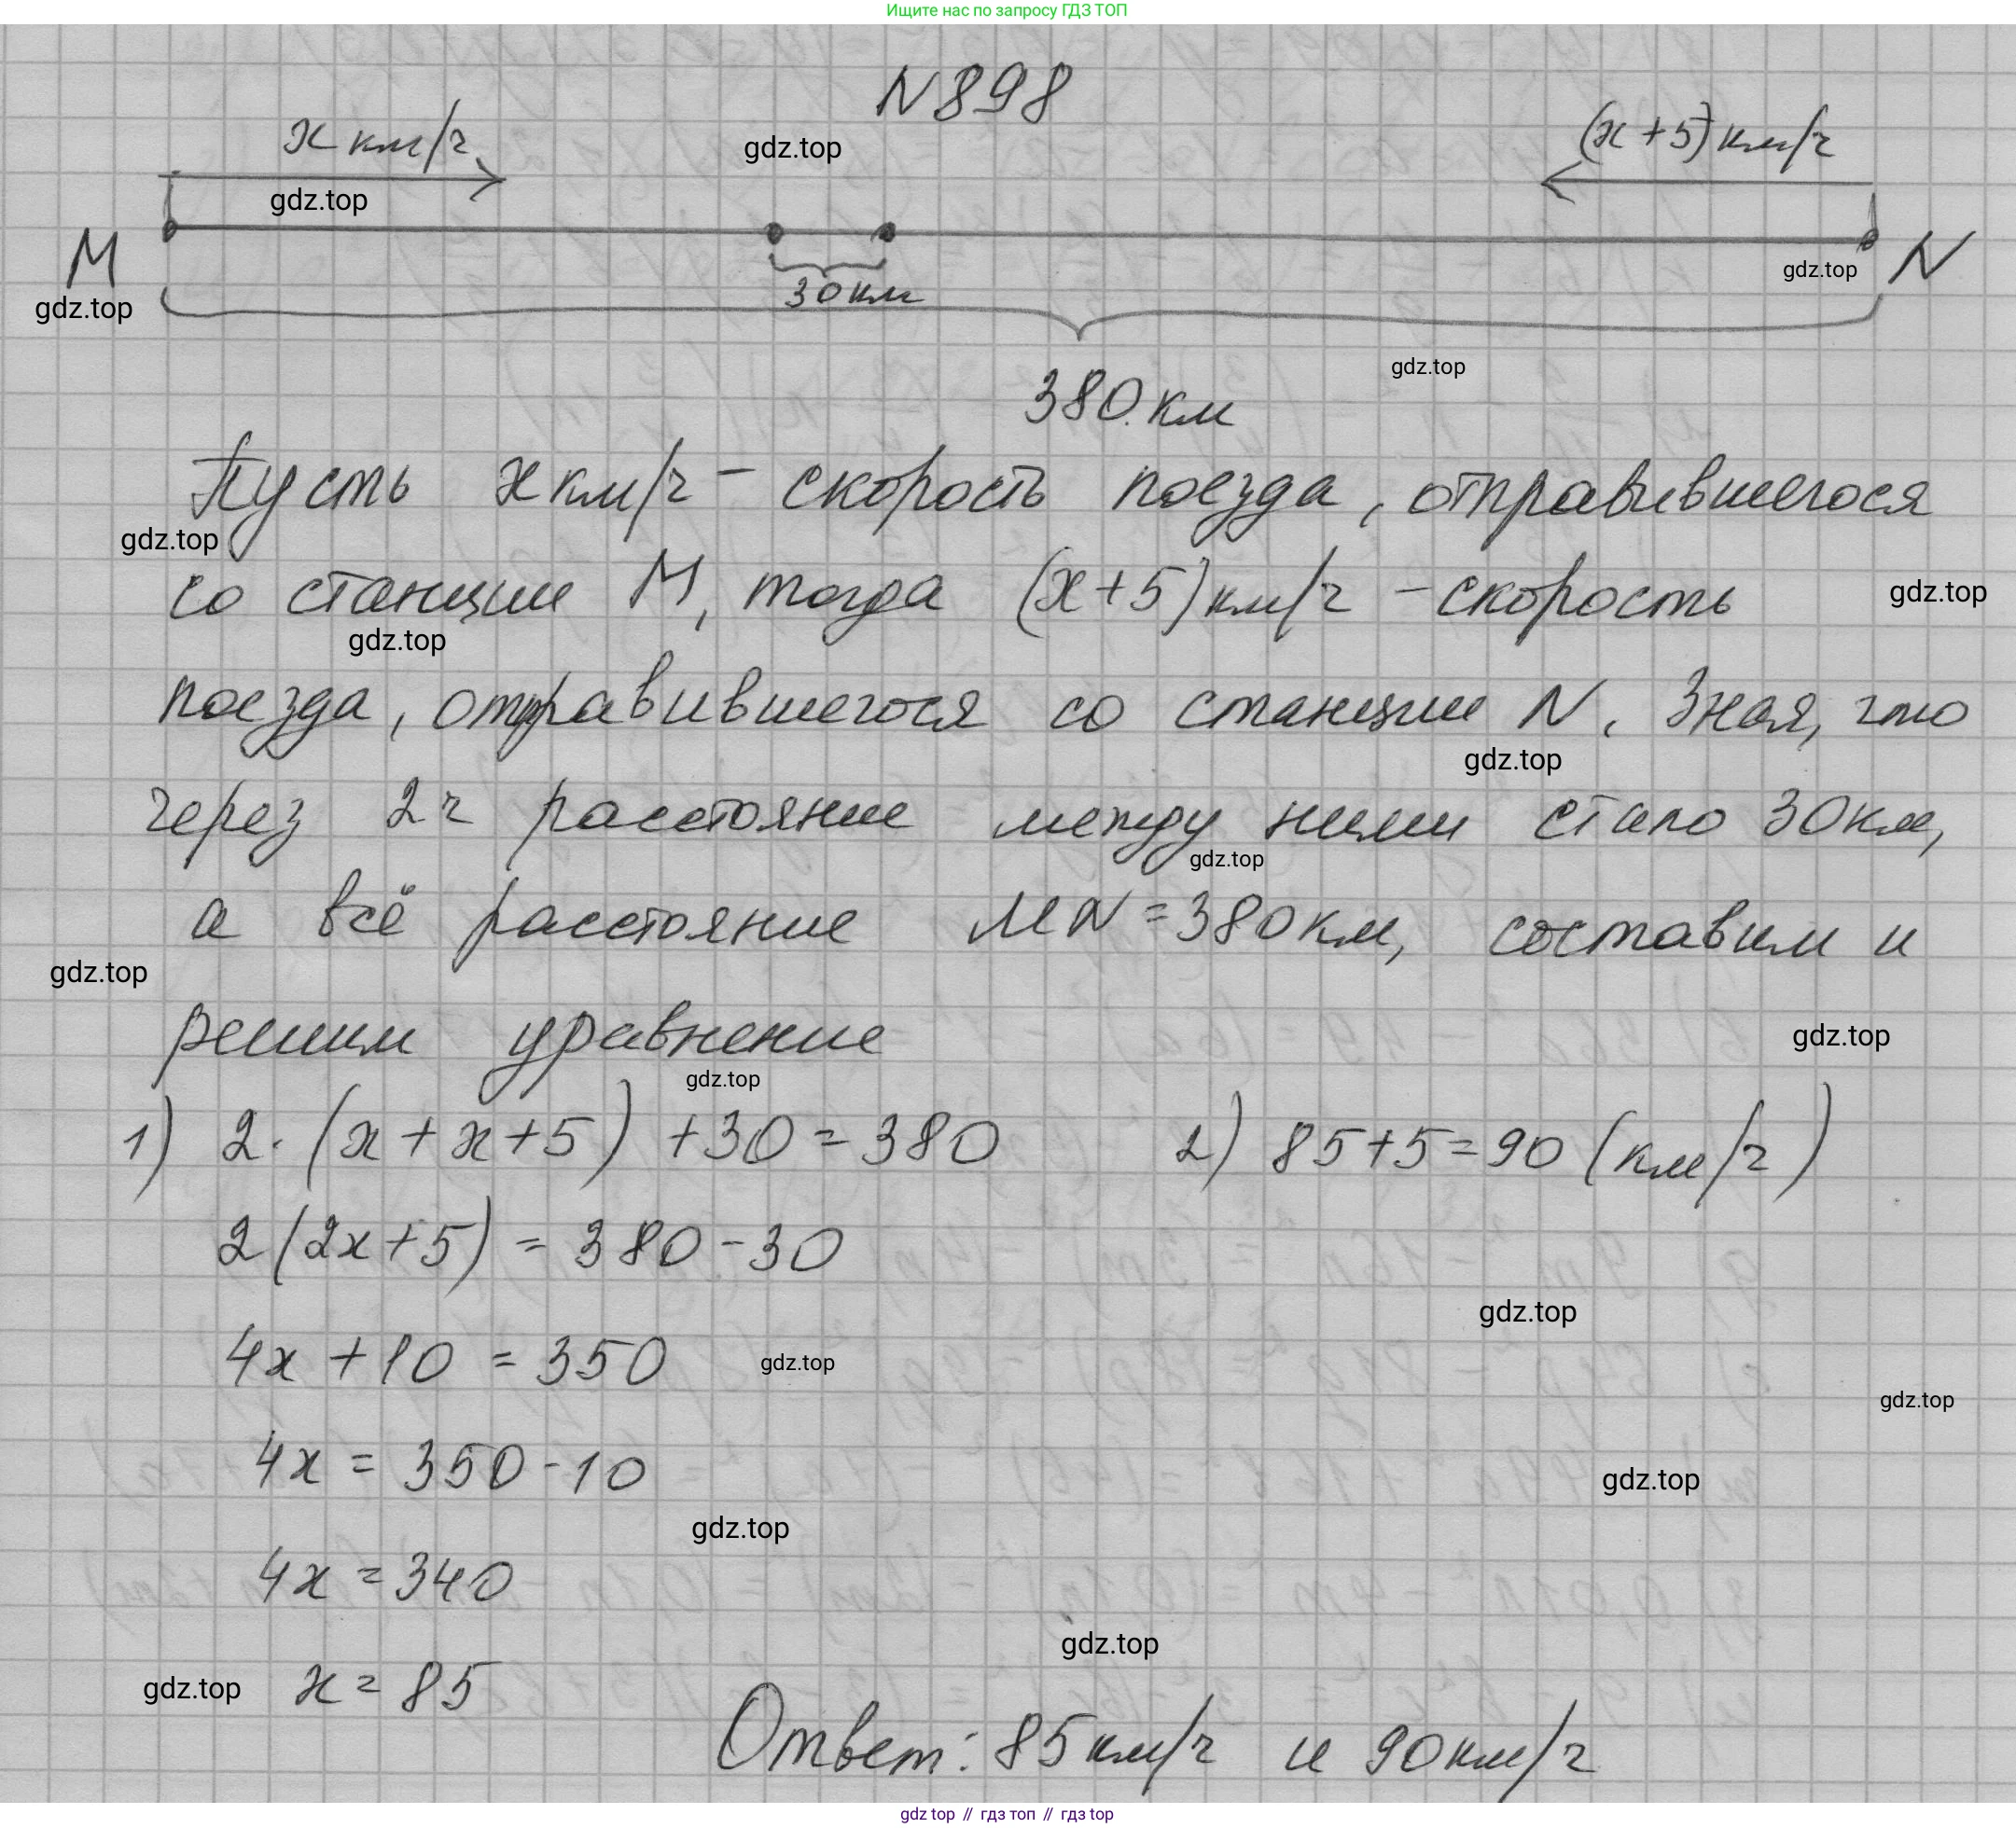 Ищите нас по запросу ГДЗ ТОП
N898
x км/ч
gdz.top
(x+5) км/ч
gdz.top
M
30 км
gdz.top
N
gdz.top
gdz.top
380 км
Пусть x км/ч – скорость поезда, отправившегося
gdz.top
со станции M, тогда (x+5) км/ч – скорость
gdz.top
gdz.top
поезда, отправившегося со станции N. Зная, что
gdz.top
через 2ч расстояние между ними стало 30км,
gdz.top
а всё расстояние MN=380км, составим и
gdz.top
решим уравнение
gdz.top
gdz.top
1) 2·(x+x+5)+30=380
2) 85+5=90 (км/ч)
2(2x+5)=380-30
gdz.top
4x+10=350
gdz.top
gdz.top
4x=350-10
gdz.top
gdz.top
4x=340
gdz.top
gdz.top
x=85
Ответ: 85км/ч и 90км/ч
gdz top // гдз топ // гдз top